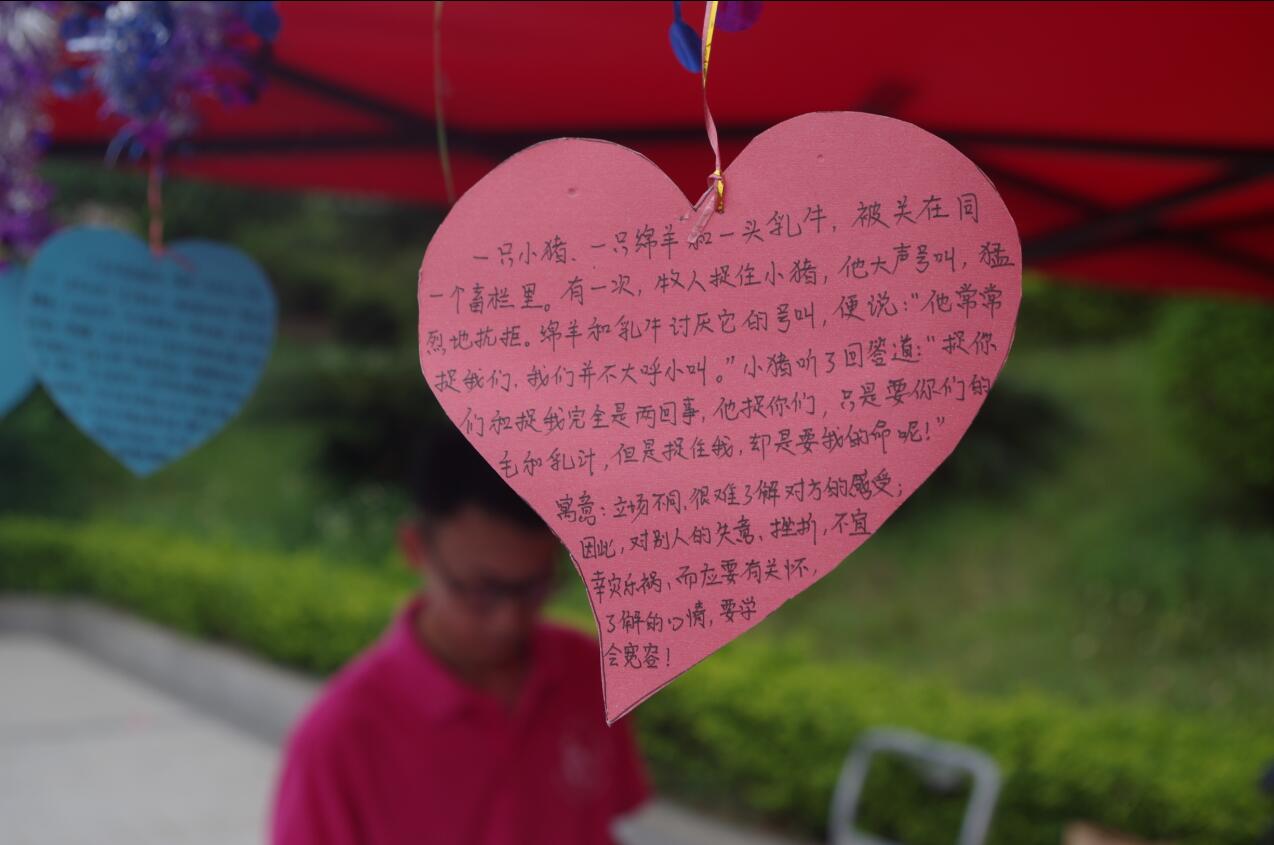 一只小猪、一只绵羊和一头乳牛，被关在同
一个畜栏里。有一次，牧人捉住小猪，他大声号叫，猛
烈地抗拒。绵羊和乳牛讨厌它的号叫，便说：“他常常
捉我们，我们并不大呼小叫。”小猪听了回答道：“捉你
们和捉我完全是两回事，他捉你们，只是要你们的
毛和乳汁，但是捉住我，却是要我的命呢！”
寓意：立场不同，很难了解对方的感受；
因此，对别人的失意、挫折，不宜
幸灾乐祸，而应要有关怀，
了解的心情，要学
会宽容！